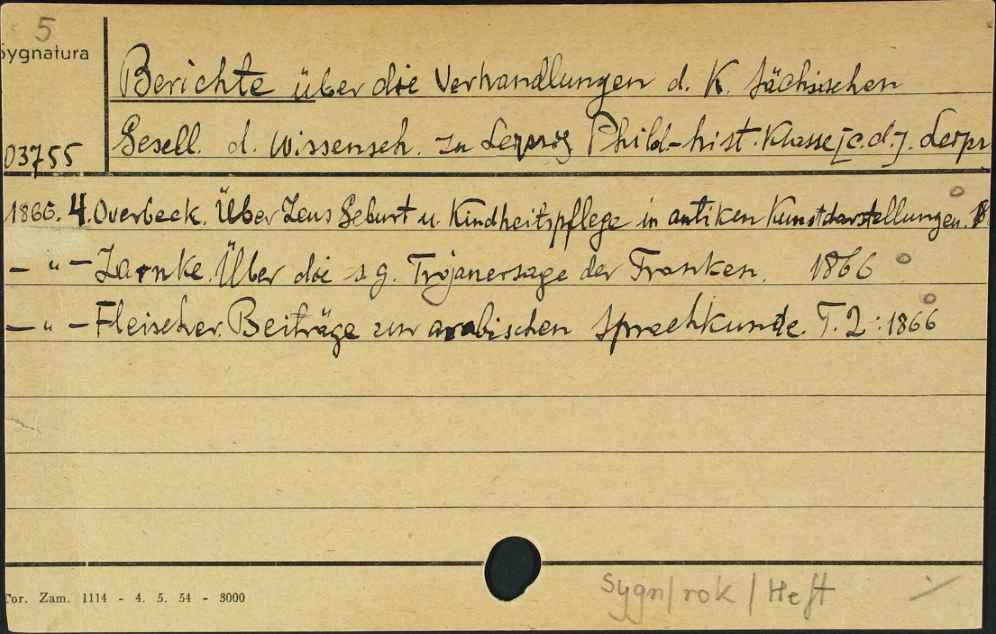 5
Sygnatura
Berichte über die Verhandlungen d. K. Sächsischen
03755
Gesell. d. Wissensch. zu Leipzig Philol-hist. Klasse [c.d.]. Leipz
1866. 4. Overbeck. Über Zeus Geburt u. Kindheitspflege in antiken Kunstdarstellungen.
– " – Zarnke. Über die s g. Trojanersage der Franken. 1866
– " – Fleischer. Beiträge zur arabischen Sprachkunde. T. 2 : 1866
Tor. Zam. 1114 - 4. 5. 54 - 3000
Sygn/rok / Heft